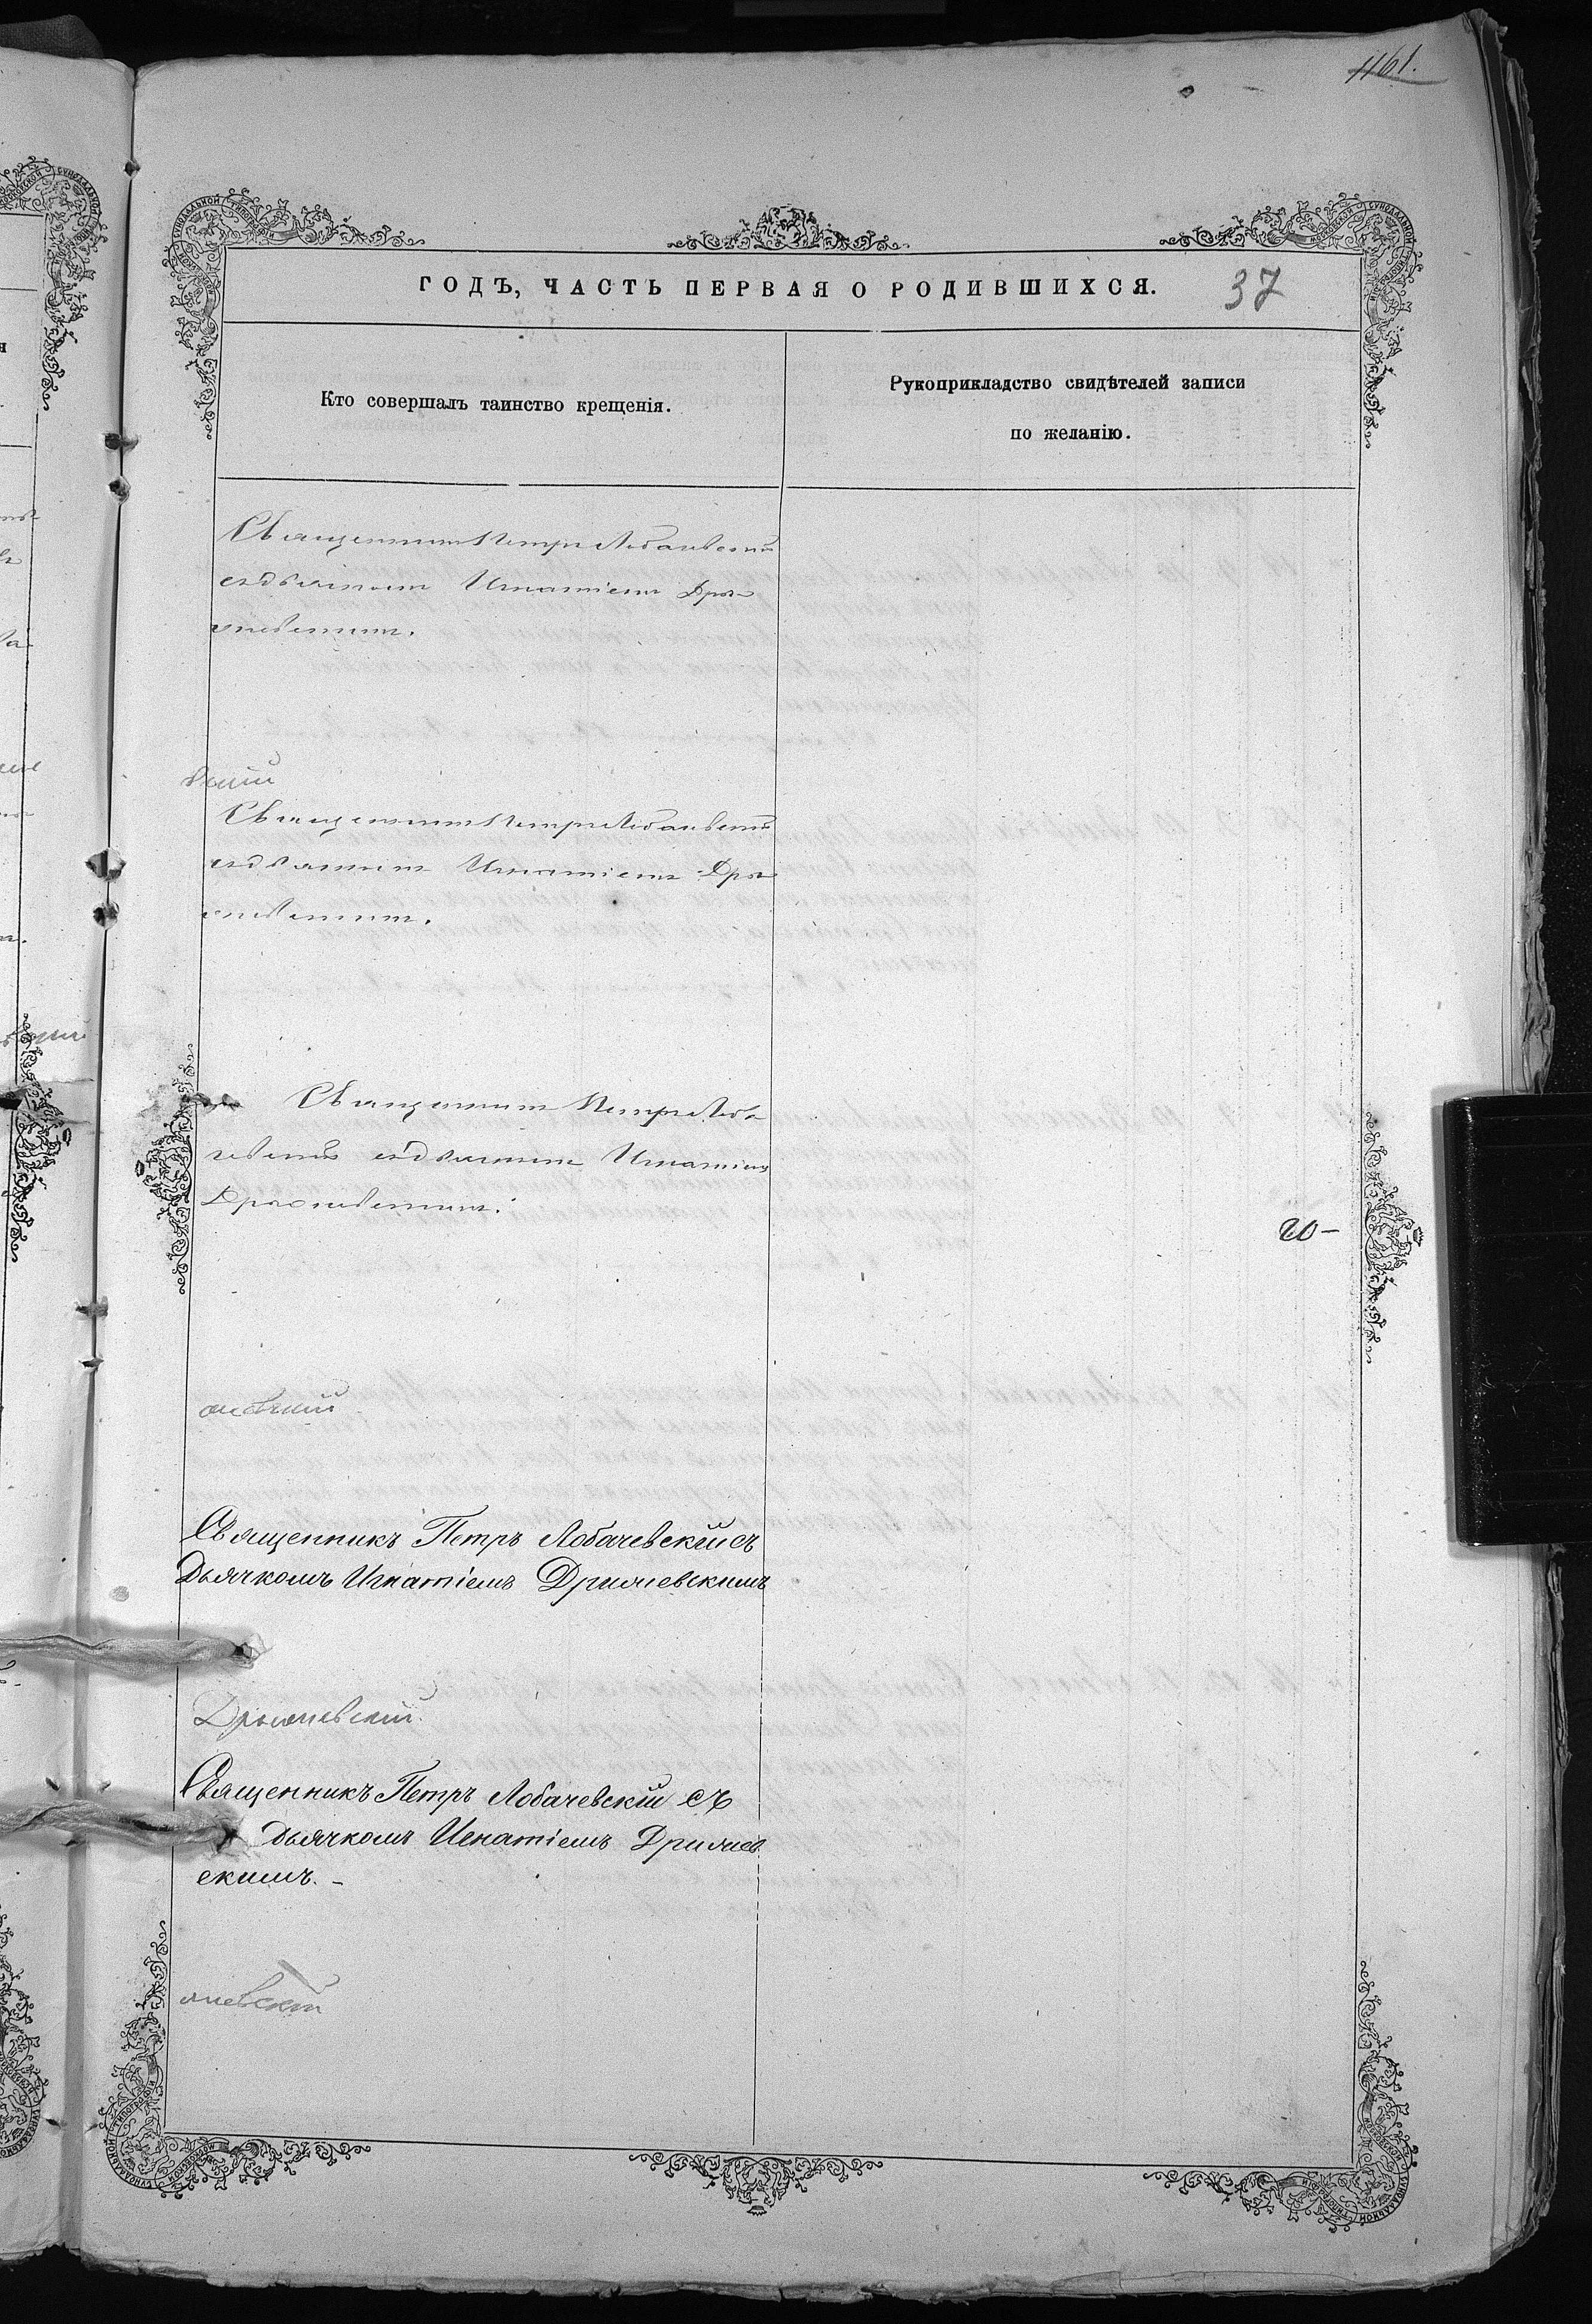 1161.
ГОДЪ, ЧАСТЬ ПЕРВАЯ О РОДИВШИХСЯ.
37
Кто совершалъ таинство крещенія.
Рукоприкладство свидѣтелей записи
по желанію.
Священникъ Петръ Лобачевскій
съ дьячкомъ Игнатіемъ Дры-
чевскимъ.
вскій
Священникъ Петръ Лобачевскій
съ дьячкомъ Игнатіемъ Дры-
чевскимъ.
Священникъ Петръ Лоба-
чевскій съ дьячкомъ Игнатіемъ
20-
Священникъ Петръ Лобачевскій съ
Дьячкомъ Игнатіемъ
Священникъ Петръ Лобачевскій съ
Дьячкомъ Игнатіемъ
скимъ. -